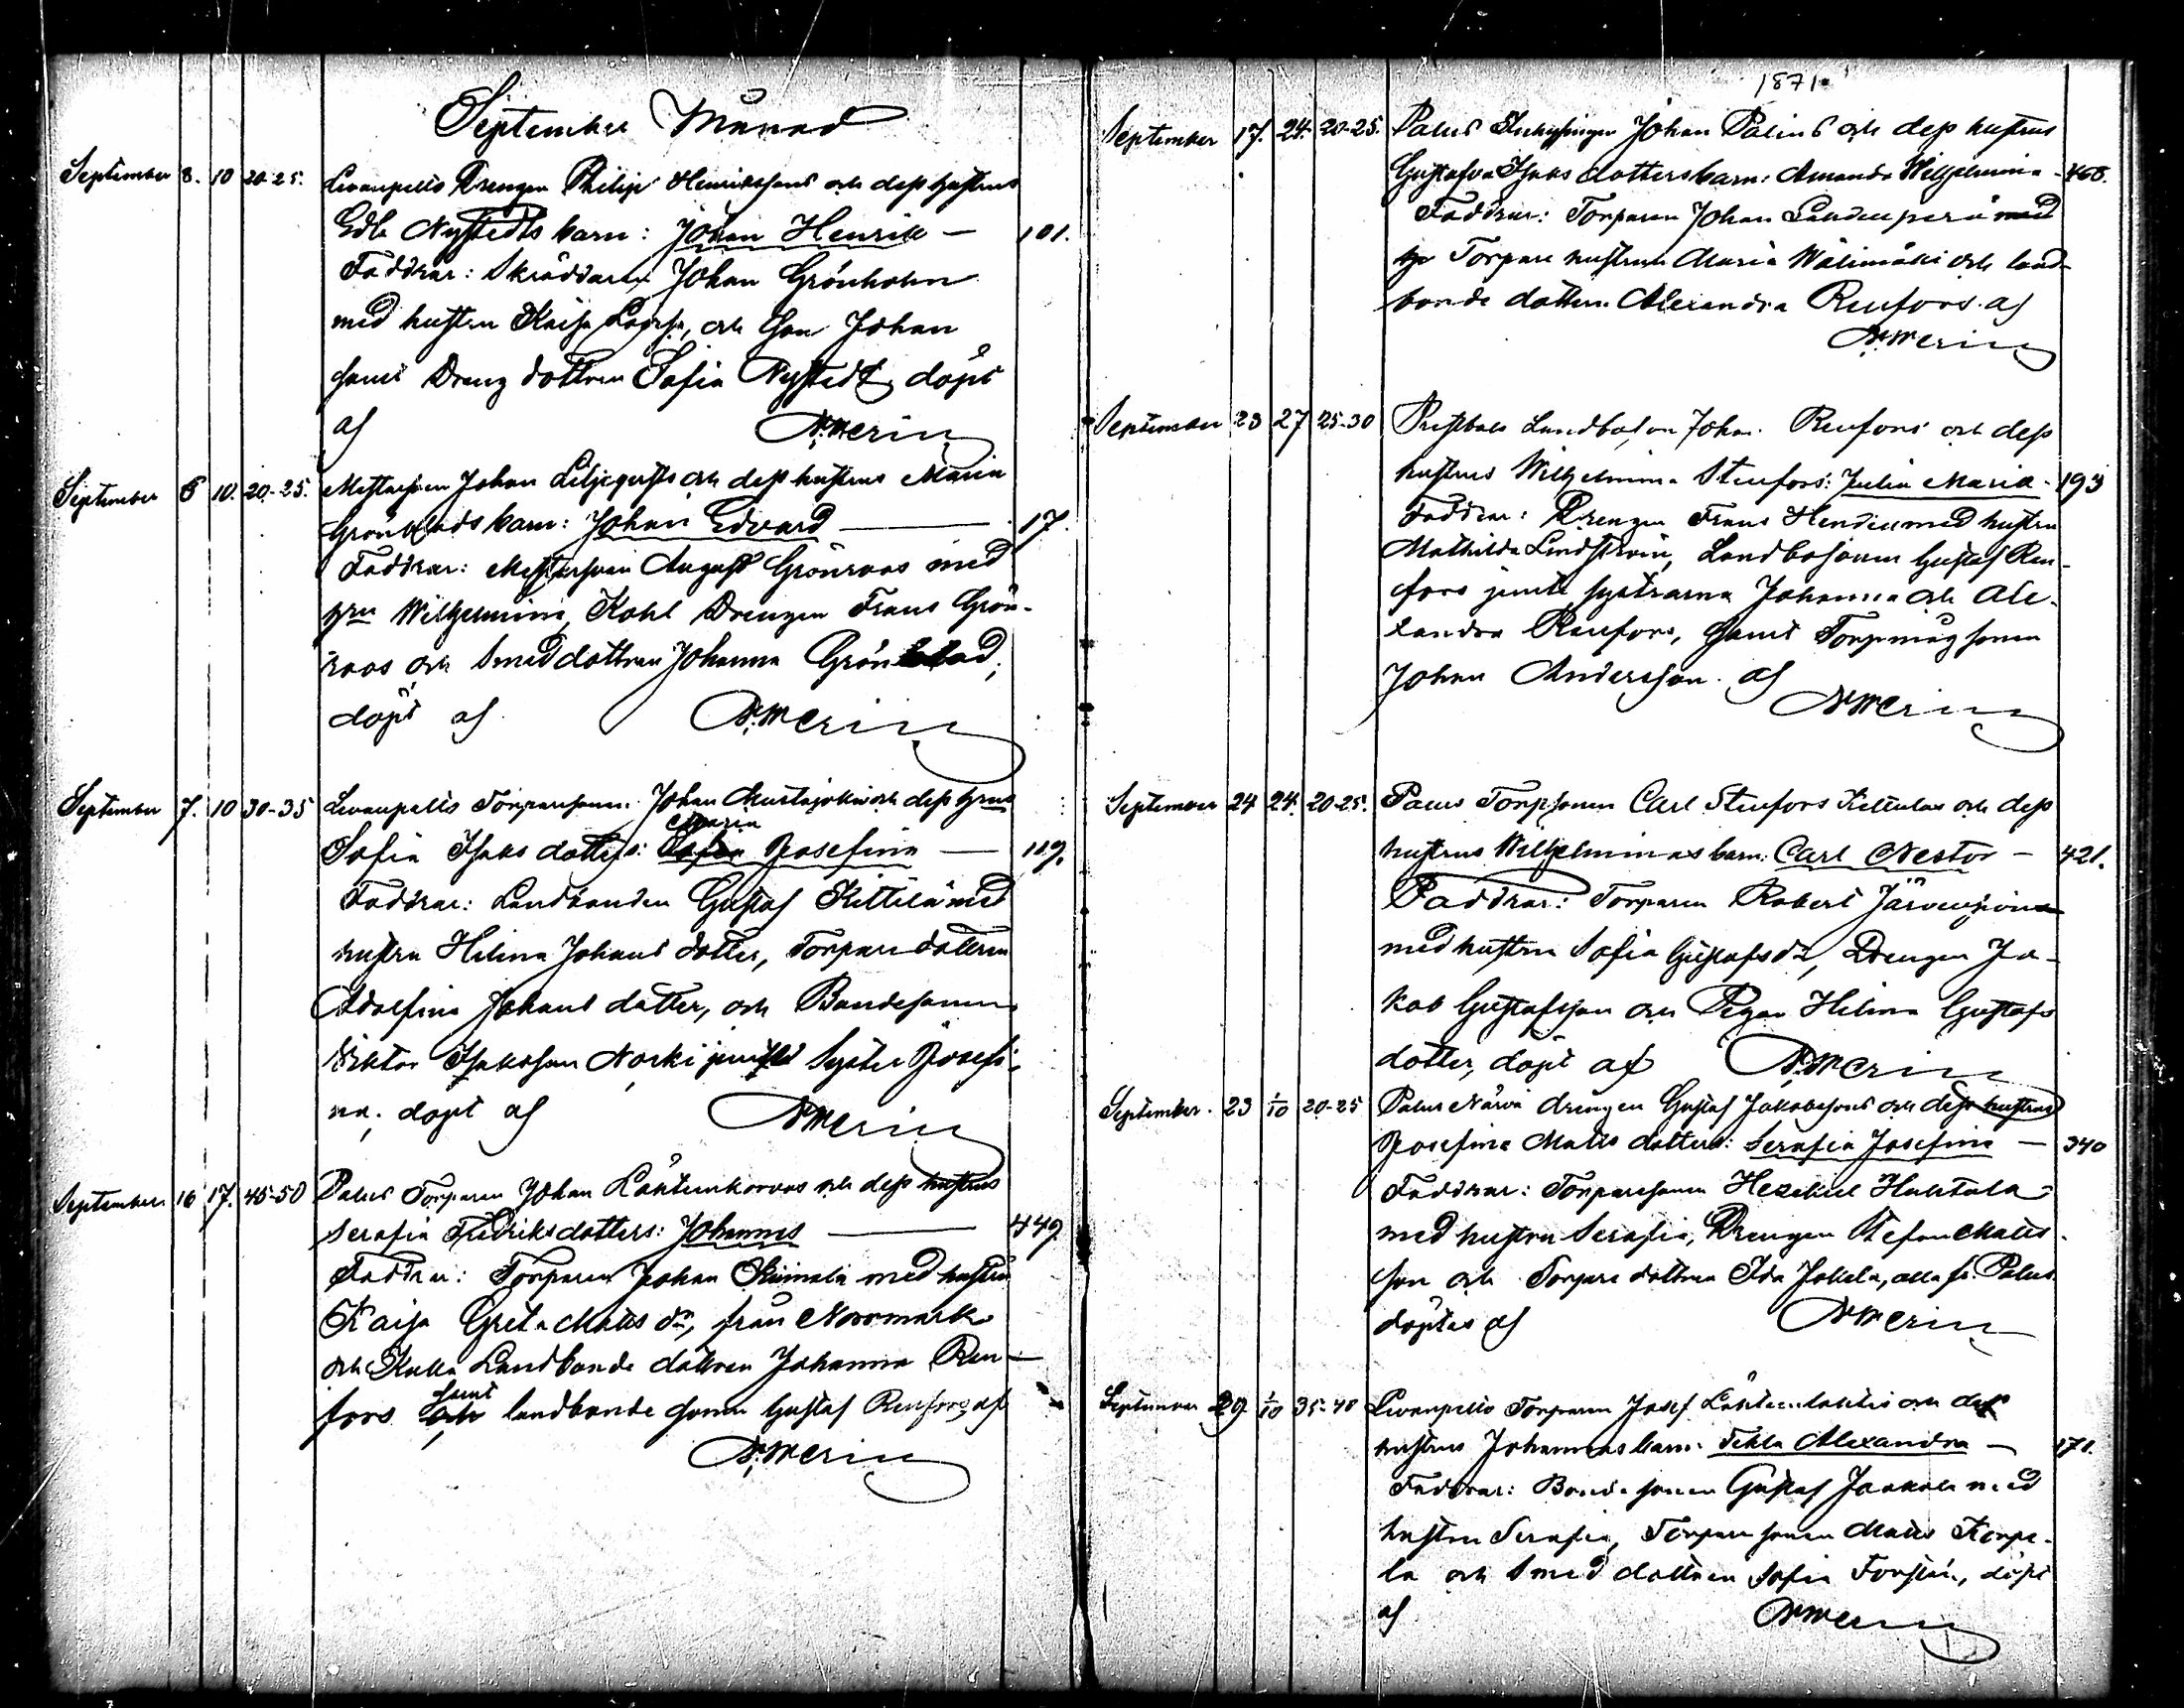 September Månad
September 8. 10 20-25. Levanpelto Drengen Philip Henrikssons och dess hustrus
Edla Nystedts barn: Johan Henrik — 101.
Faddrar: Skräddaren Johan Grönholm
med hustru Kaisa Lovisa, och Son Johan
samt Dreng dottren Sofia Nystedt, döpt
af N. Merin
September 6 10. 20-25. Johan Liljeqvists och dess hustrus Maria
Grönblads barn: Johan Edvard — 17.
Faddrar: August Grönroos med
hru Wilhelmina, Kohl Drengen Frans Grön-
roos och Smeddottren Johanna Grönblad,
döpt af N. Merin
September 7. 10 30-35 Levanpelto Torparesonen Johan Mustajokis och dess hrus
Maria
Sofia Isaks dotters: Josefina — 119.
Faddrar: Landbonden Gustaf Kittilä med
hustru Helina Johans dotter, Torpare dottren
Adolfina Johans dotter, och Bondesonen
Viktor Isaksson Norki jemte Syster Josefi-
na, döpt af N. Merin
September 16 17. 45-50 Palus Torparen Johan Lähteenkorvas och dess hustrus
Serafia Fredriksdotters: Johannes — 449
Faddrar: Torparen Johan med hustru
Kaisa Greta Matts dr, från Norrmark
och Kulla Landbonde dottren Johanna Ren-
samt
fors och landbonde sonen Gustaf Renfors af
N. Merin
1871.
September 17. 24. 20-25. Palus Johan Palins och dess hustrus
Gustafva Isaks dotters barn: Amanda Wilhelmina - 468.
Faddrar: Torparen Johan Lahdenperä med
Torpare hustrun Maria Wälimäki och land-
bonde dottren Alexandra Renfors. af
N. Merin
September 23 27 25-30 Landboson Johan Renfors och dess
hustrus Wilhelmina Stenfors: Julia Maria - 193
Faddrar: Drengen Frans med hustru
Mathilda Lindström, Landbosonen Gustaf Ren-
fors jemte systrarna Johanna och Ale-
xandra Renfors, samt Torpmåg sonen
Johan Andersson. af
N Merin
September 24 24. 20-25. Palus Torpsonen Carl Stenfors och dess
hustrus Wilhelminas barn: Carl Nestor — 421.
Faddrar: Torparen Robert Järvenpää
med hustru Sofia Gustafsdr, Drengen Ja-
kob Gustafsson och Pigan Helina Gustafs
dotter, döpt af N. Merin
September. 23 1/10 20-25 Palus drengen Gustaf Jakobssons och dess hustrus
Josefina Matts dotters: Serafia Josefina — 340
Faddrar: Torparesonen Hezekiel Huhtala
med hustru Serafia, Drengen Stefan Matts-
son och Torpare dottren Ida Jokela, alla fr. Palus
döptes af N Merin
September 29 1/10 35-40 Levanpelto Torparen Josef Lähteenlahtis och dess
hustrus Johannas barn: Tekla Alexandra — 171.
Faddrar: Bonde sonen Gustaf Jaakola med
hustru Serafia, Torpare sonen Matts Korpe-
la och Smed dottren Sofia Forsten, döpt
af N Merin